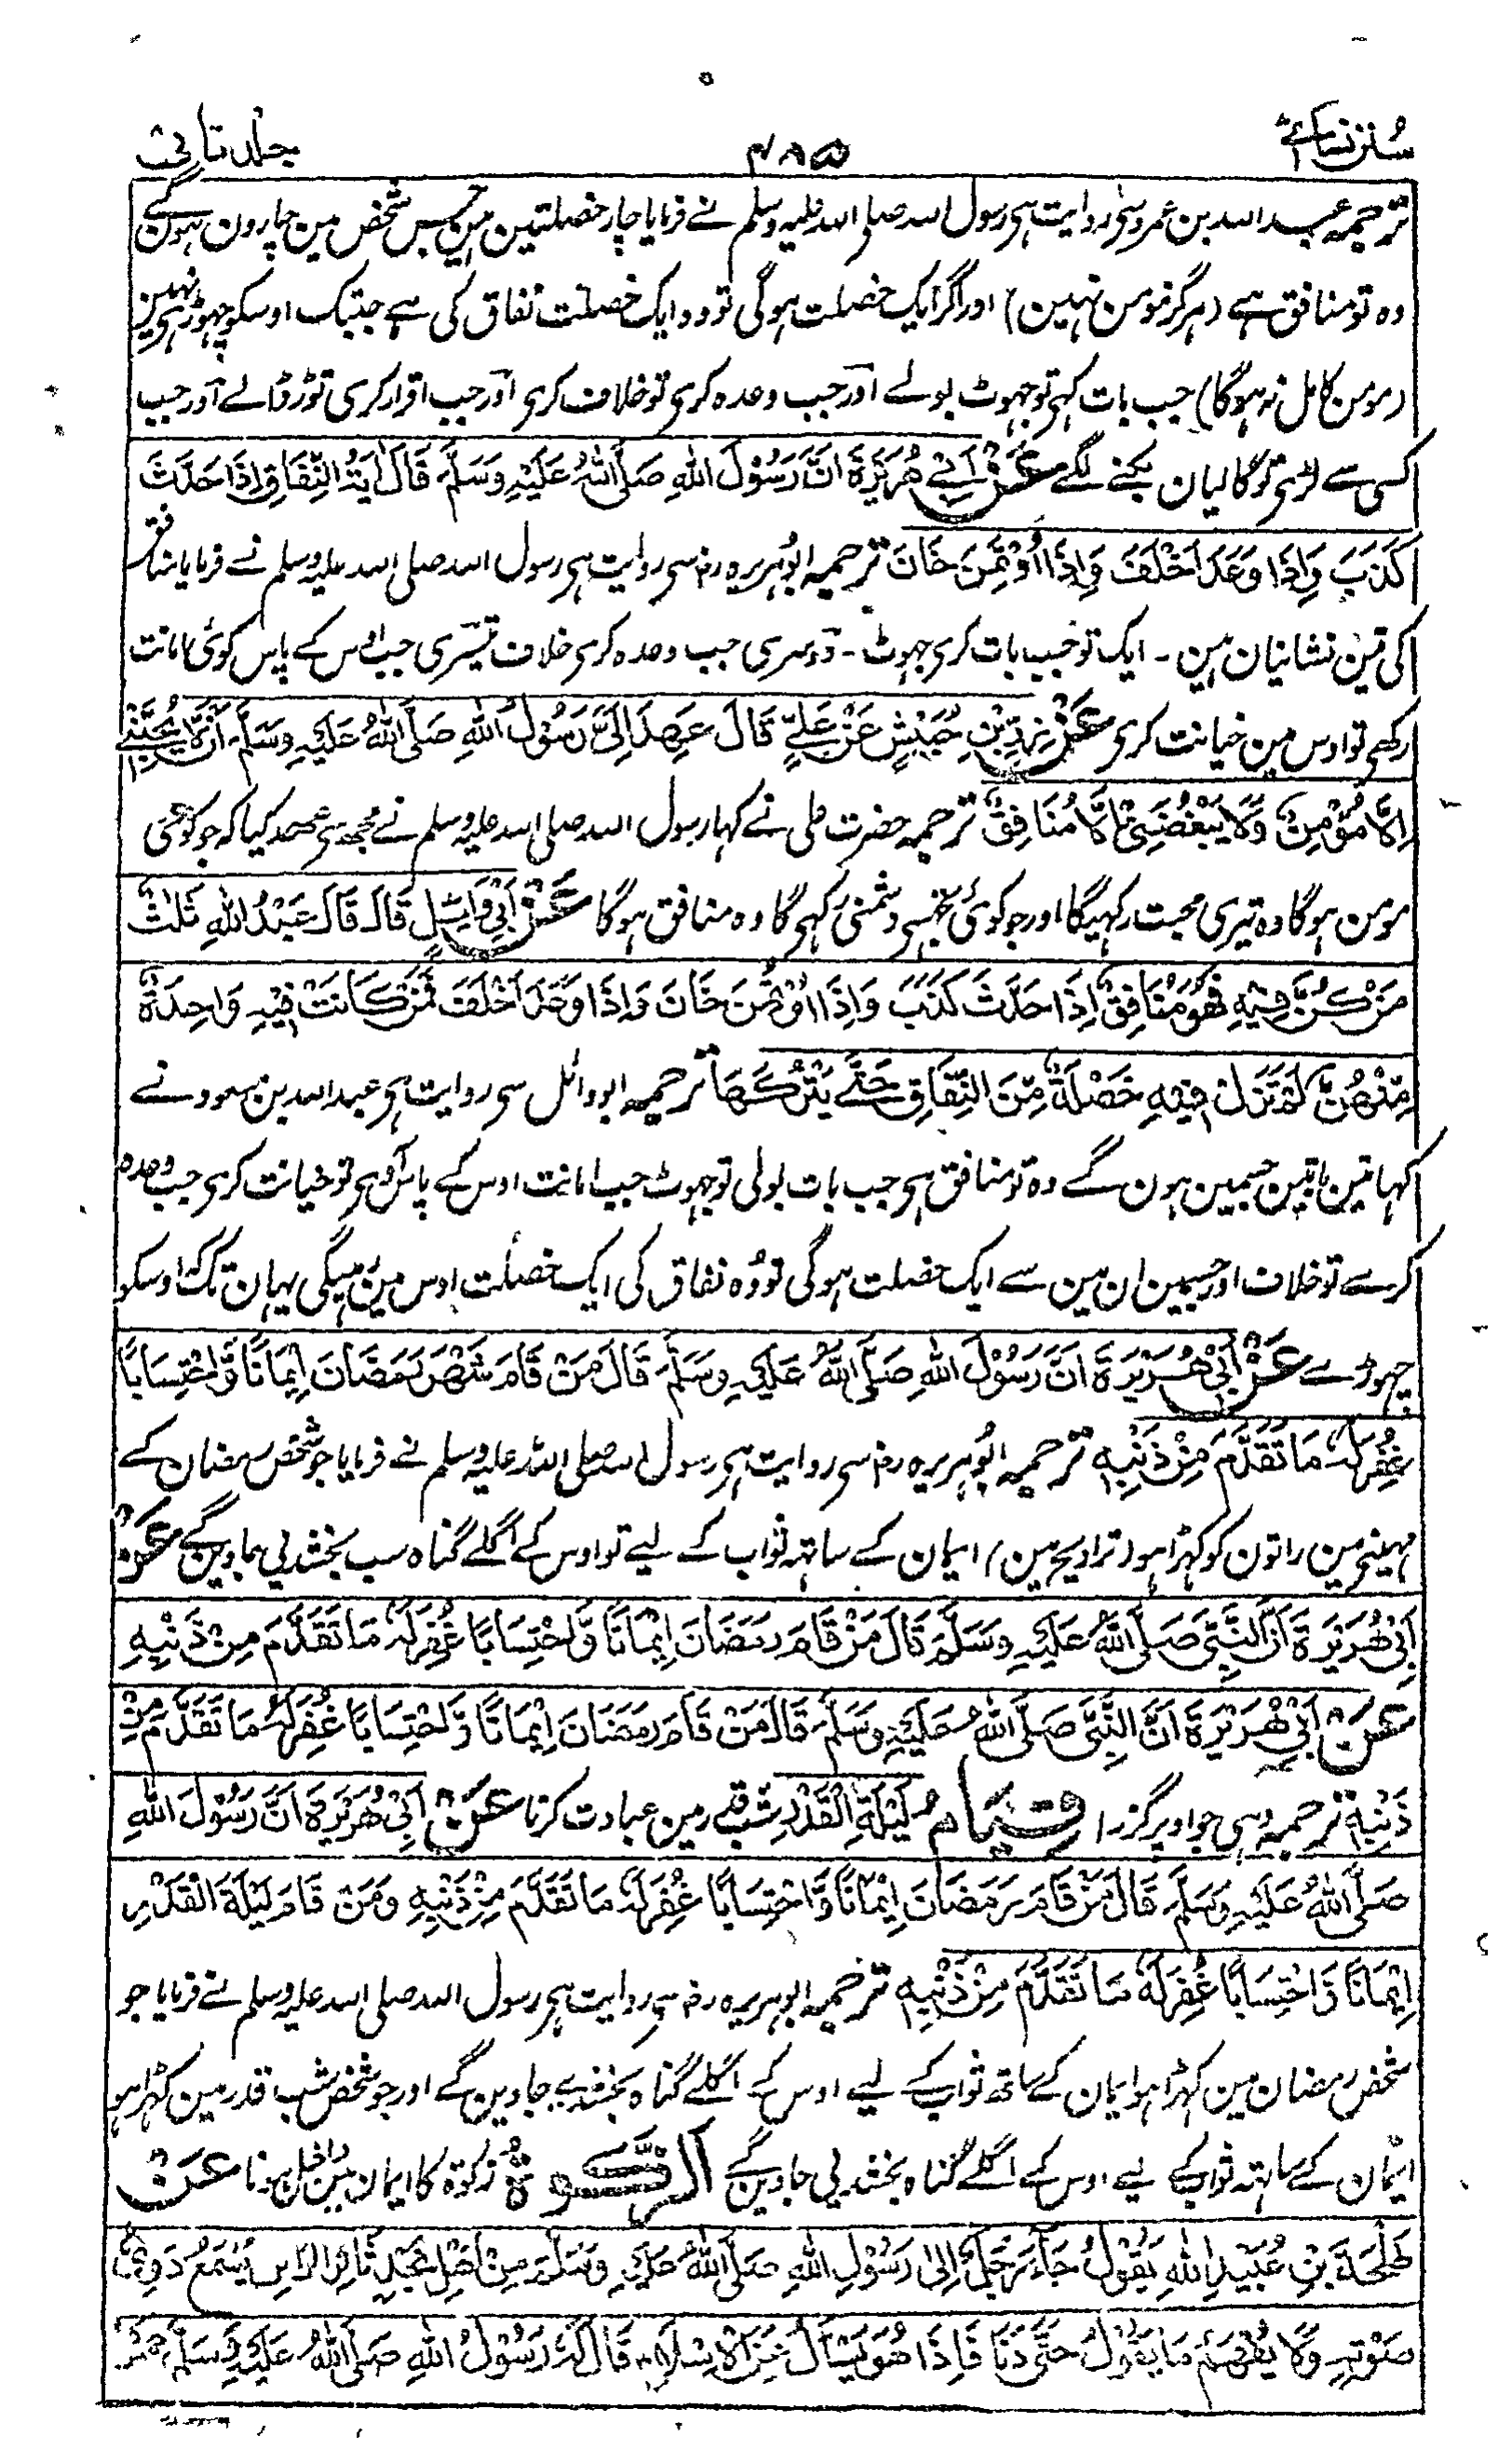 سنن نسائی ۴۸۵ جلد ثانی
ترجمہ عبد اللہ بن عمرو سے روایت ہے رسول اللہ صلی اللہ علیہ وسلم نے فرمایا چار خصلتین ہین جس شخص مین چارون ہون گے
وہ تو منافق ہے (ہرگز مومن نہین) اور اگر ایک خصلت ہوگی تو وہ ایک خصلت نفاق کی ہے جبتک اوسکو چہوڑے نہین
(مومن کامل نہ ہوگا) جب بات کہے تو جہوٹ بولے اور جب وعدہ کرے تو خلاف کرے اور جب اقرار کرے توڑ ڈالے اور جب
کسی سے لڑے تو گالیان بکنے لگے عَنْ اَبِیْ ہُرَیْرَۃَ اَنَّ رَسُوْلَ اللّٰہِ صَلَّی اللّٰہُ عَلَیْہِ وَسَلَّمَ قَالَ اٰیَۃُ النِّفَاقِ اِذَا حَدَّثَ
کَذَبَ وَاِذَا وَعَدَ اَخْلَفَ وَاِذَا اؤْتُمِنَ خَانَ ترجمہ ابوہریرہ رضہ سے روایت ہے رسول اللہ صلی اللہ علیہ وسلم نے فرمایا منافق
کی تین نشانیان ہین ۔ ایک تو جب بات کرے جہوٹ ۔ دوسری جب وعدہ کرے خلاف تیسری جب اوس کے پاس کوئی امانت
رکھے تو اوس مین خیانت کرے عَنْ زِرِّ بْنِ حُبَیْشٍ عَنْ عَلِیٍّ قَالَ عَہِدَ اِلَیَّ رَسُوْلُ اللّٰہِ صَلَّی اللّٰہُ عَلَیْہِ وَسَلَّمَ اَنْ لَّا یُحِبَّنِیْ
اِلَّا مُؤْمِنٌ وَّلَا یُبْغِضَنِیْ اِلَّا مُنَافِقٌ ترجمہ حضرت علی نے کہا رسول اللہ صلی اللہ علیہ وسلم نے مجھسے عہد کیا کہ جو کوئی
مومن ہوگا وہ تیری محبت رکہیگا اور جو کوئی تجہسے دشمنی رکہے گا وہ منافق ہوگا عَنْ اَبِیْ وَائِلٍ قَالَ قَالَ عَبْدُ اللّٰہِ ثَلٰثٌ
مَنْ کُنَّ فِیْہِ فَہُوَ مُنَافِقٌ اِذَا حَدَّثَ کَذَبَ وَاِذَا اؤْتُمِنَ خَانَ وَاِذَا وَعَدَ اَخْلَفَ فَمَنْ کَانَتْ فِیْہِ وَاحِدَۃٌ
مِّنْہُنَّ لَمْ تَزَلْ فِیْہِ خَصْلَۃٌ مِّنَ النِّفَاقِ حَتّٰی یَتْرُکَہَا ترجمہ ابو وائل سے روایت ہے عبد اللہ بن مسعود نے
کہا تین باتین جسمین ہون گے وہ تو منافق ہے جب بات بولی تو جہوٹ جب امانت اوس کے پاس آوے تو خیانت کرے جب وعدہ
کرے تو خلاف اور جسمین ان مین سے ایک خصلت ہوگی تو وہ نفاق کی ایک خصلت اوس مین رہیگی یہان تک کہ اوسکو
چہوڑے عَنْ اَبِیْ ہُرَیْرَۃَ اَنَّ رَسُوْلَ اللّٰہِ صَلَّی اللّٰہُ عَلَیْہِ وَسَلَّمَ قَالَ مَنْ قَامَ شَہْرَ رَمَضَانَ اِیْمَانًا وَّاحْتِسَابًا
غُفِرَ لَہٗ مَا تَقَدَّمَ مِنْ ذَنْبِہٖ ترجمہ ابوہریرہ رضہ سے روایت ہے رسول اللہ صلی اللہ علیہ وسلم نے فرمایا جو شخص رمضان کے
مہینے مین راتون کو کہڑا ہو (تراویح مین) ایمان کے ساتہہ ثواب کے لیے تو اوس کے اگلے گناہ سب بخشدیے جاوین گے عَنْ
اَبِیْ ہُرَیْرَۃَ اَنَّ النَّبِیَّ صَلَّی اللّٰہُ عَلَیْہِ وَسَلَّمَ قَالَ مَنْ قَامَ رَمَضَانَ اِیْمَانًا وَّاحْتِسَابًا غُفِرَ لَہٗ مَا تَقَدَّمَ مِنْ ذَنْبِہٖ
عَنْ اَبِیْ ہُرَیْرَۃَ اَنَّ النَّبِیَّ صَلَّی اللّٰہُ عَلَیْہِ وَسَلَّمَ قَالَ مَنْ قَامَ رَمَضَانَ اِیْمَانًا وَّاحْتِسَابًا غُفِرَ لَہٗ مَا تَقَدَّمَ مِنْ
ذَنْبِہٖ ترجمہ وہی جو اوپر گزرا قِیَامُ لَیْلَۃِ الْقَدْرِ شب قدر مین عبادت کرنا عَنْ اَبِیْ ہُرَیْرَۃَ اَنَّ رَسُوْلَ اللّٰہِ
صَلَّی اللّٰہُ عَلَیْہِ وَسَلَّمَ قَالَ مَنْ قَامَ رَمَضَانَ اِیْمَانًا وَّاحْتِسَابًا غُفِرَ لَہٗ مَا تَقَدَّمَ مِنْ ذَنْبِہٖ وَمَنْ قَامَ لَیْلَۃَ الْقَدْرِ
اِیْمَانًا وَّاحْتِسَابًا غُفِرَ لَہٗ مَا تَقَدَّمَ مِنْ ذَنْبِہٖ ترجمہ ابوہریرہ رضہ سے روایت ہے رسول اللہ صلی اللہ علیہ وسلم نے فرمایا جو
شخص رمضان مین کہڑا ہو ایمان کے ساتھ ثواب کے لیے اوس کے اگلے گناہ بخشدیے جاوین گے اور جو شخص شب قدر مین کہڑا ہو
ایمان کے ساتہہ ثواب کے لیے اوس کے اگلے گناہ بخشدیے جاوین گے اَلزَّکٰوۃُ زکوۃ کا ایمان مین داخل ہونا عَنْ
طَلْحَۃَ بْنِ عُبَیْدِ اللّٰہِ یَقُوْلُ جَاءَ رَجُلٌ اِلٰی رَسُوْلِ اللّٰہِ صَلَّی اللّٰہُ عَلَیْہِ وَسَلَّمَ مِنْ اَہْلِ نَجْدٍ ثَائِرَ الرَّاْسِ یُسْمَعُ دَوِیُّ
صَوْتِہٖ وَلَا یُفْہَمُ مَا یَقُوْلُ حَتّٰی دَنَا فَاِذَا ہُوَ یَسْاَلُ عَنِ الْاِسْلَامِ قَالَ لَہٗ رَسُوْلُ اللّٰہِ صَلَّی اللّٰہُ عَلَیْہِ وَسَلَّمَ خَمْسُ